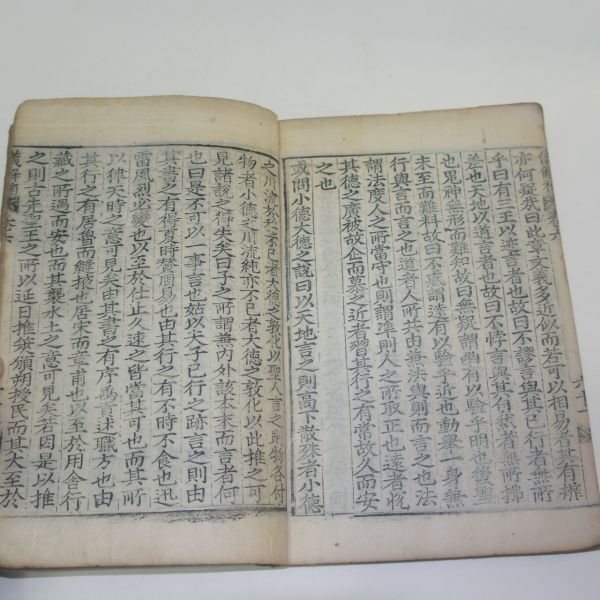 亦何疑哉曰此章文義多近似而若可以相易者其有辨
乎曰有三王以迹言者也故曰不謬言與其已行者無所
差也天地以道言者也故曰不悖言與其自然者無所拂
也鬼神無形而難知故曰無疑謂幽有以驗乎明也後聖
未至而難料故曰不惑謂遠有以驗乎近也動擧一身兼
行與言而言之也道者人所共由兼法與則而言之也法
謂法度人之所當守也則謂準則人之所取正也遠者悅
其德之廣被故企而慕之近者習其行之有常故久而安
之也
或問小德大德之說曰以天地言之則高下散殊者小德
之川流於穆不已者大德之敦化以聖人言之則物各付
物者小德之川流純亦不已者大德之敦化以此推之可
見諸說之得失矣曰子之所謂兼內外該本末而言者何
也曰是不可以一事言也姑以夫子已行之跡言之則由
其書之有得夏時贊周易也由其行之有不時不食也迅
雷風烈必變也以至於仕止久速之皆當其可也而其所
以律天時之意可見矣由其書之有序禹貢述職方也由
其行之有居魯而縫掖也居宋而章甫也以至於用舍行
藏之所遇而安也而其襲水土之意可見矣若因是以推
之則古先聖王之所以迎日推筴頒朔授民而其大至於